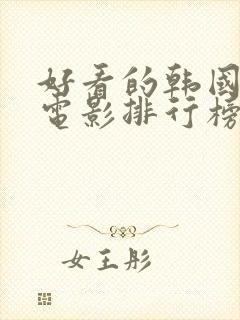 好看的韩国
电影排行榜
女王彤